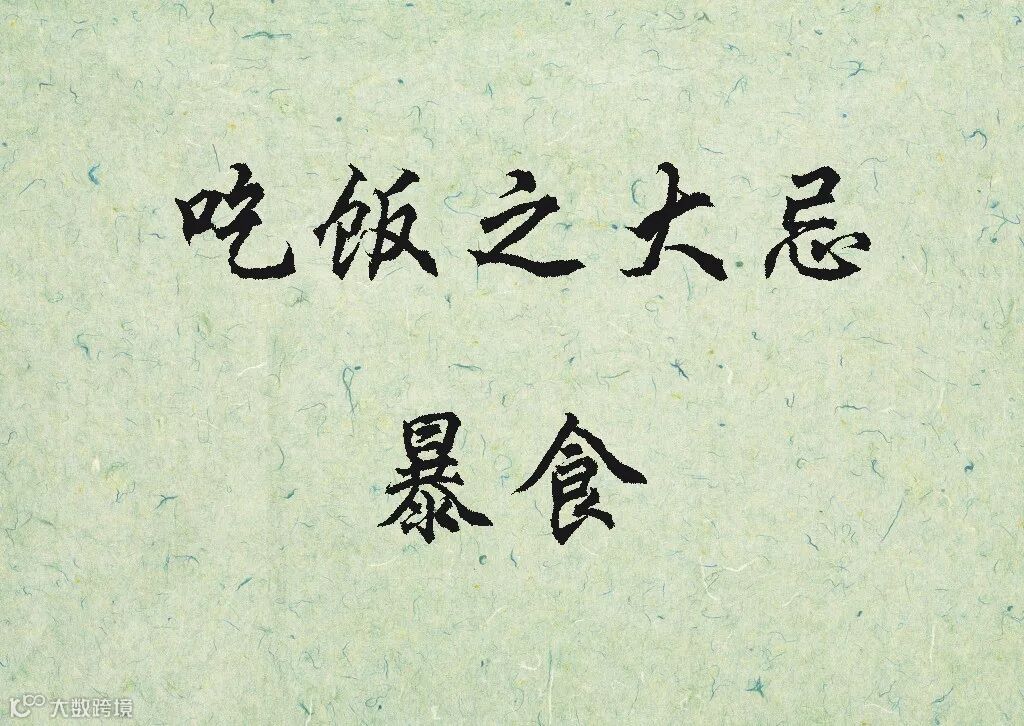 吃饭之大忌
暴食
大数跨境